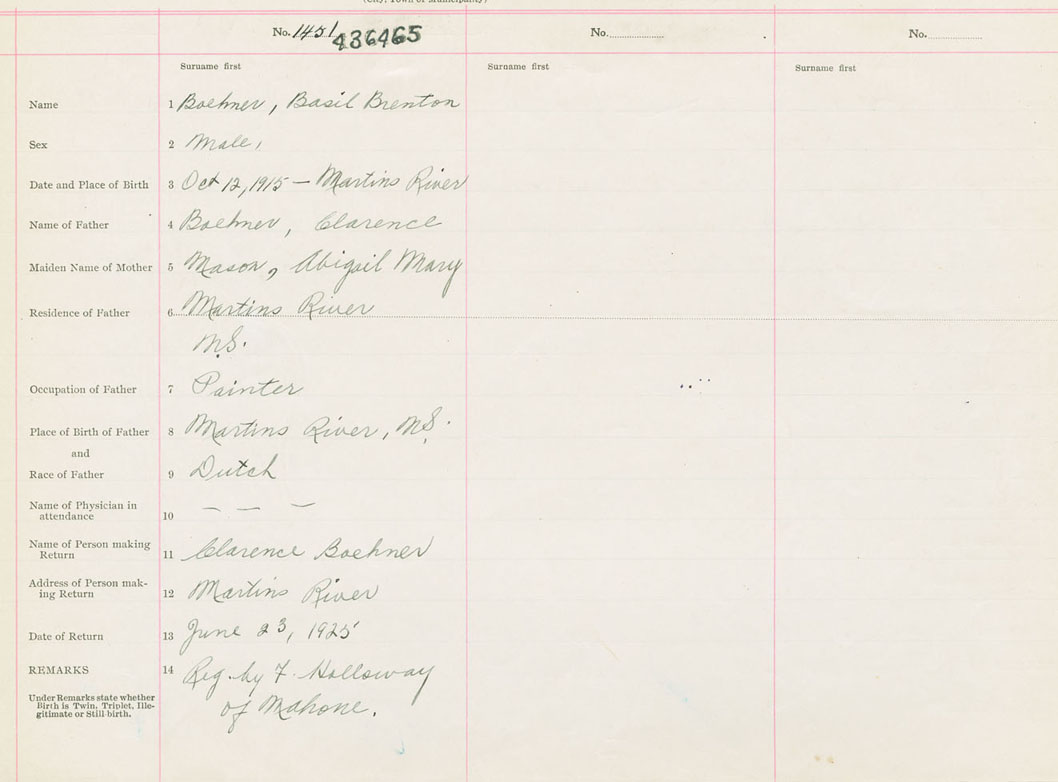 (City, Town or Municipality)
No. 1451 436465
No.
No.
Surname first
Surname first
Surname first
Name 1 Boehner, Basil Brenton
Sex 2 Male,
Date and Place of Birth 3 Oct 12, 1915 — Martins River
Name of Father 4 Boehner, Clarence
Maiden Name of Mother 5 Mason, Abigail Mary
Residence of Father 6 Martins River
N.S.
Occupation of Father 7 Painter
Place of Birth of Father 8 Martins River, N.S.
and
Race of Father 9 Dutch
Name of Physician in
attendance 10 — — —
Name of Person making
Return 11 Clarence Boehner
Address of Person mak-
ing Return 12 Martins River
Date of Return 13 June 23, 1925
REMARKS 14 Reg. by F. Holloway
Under Remarks state whether
Birth is Twin, Triplet, Ille-
gitimate or Still-birth.
of Mahone.